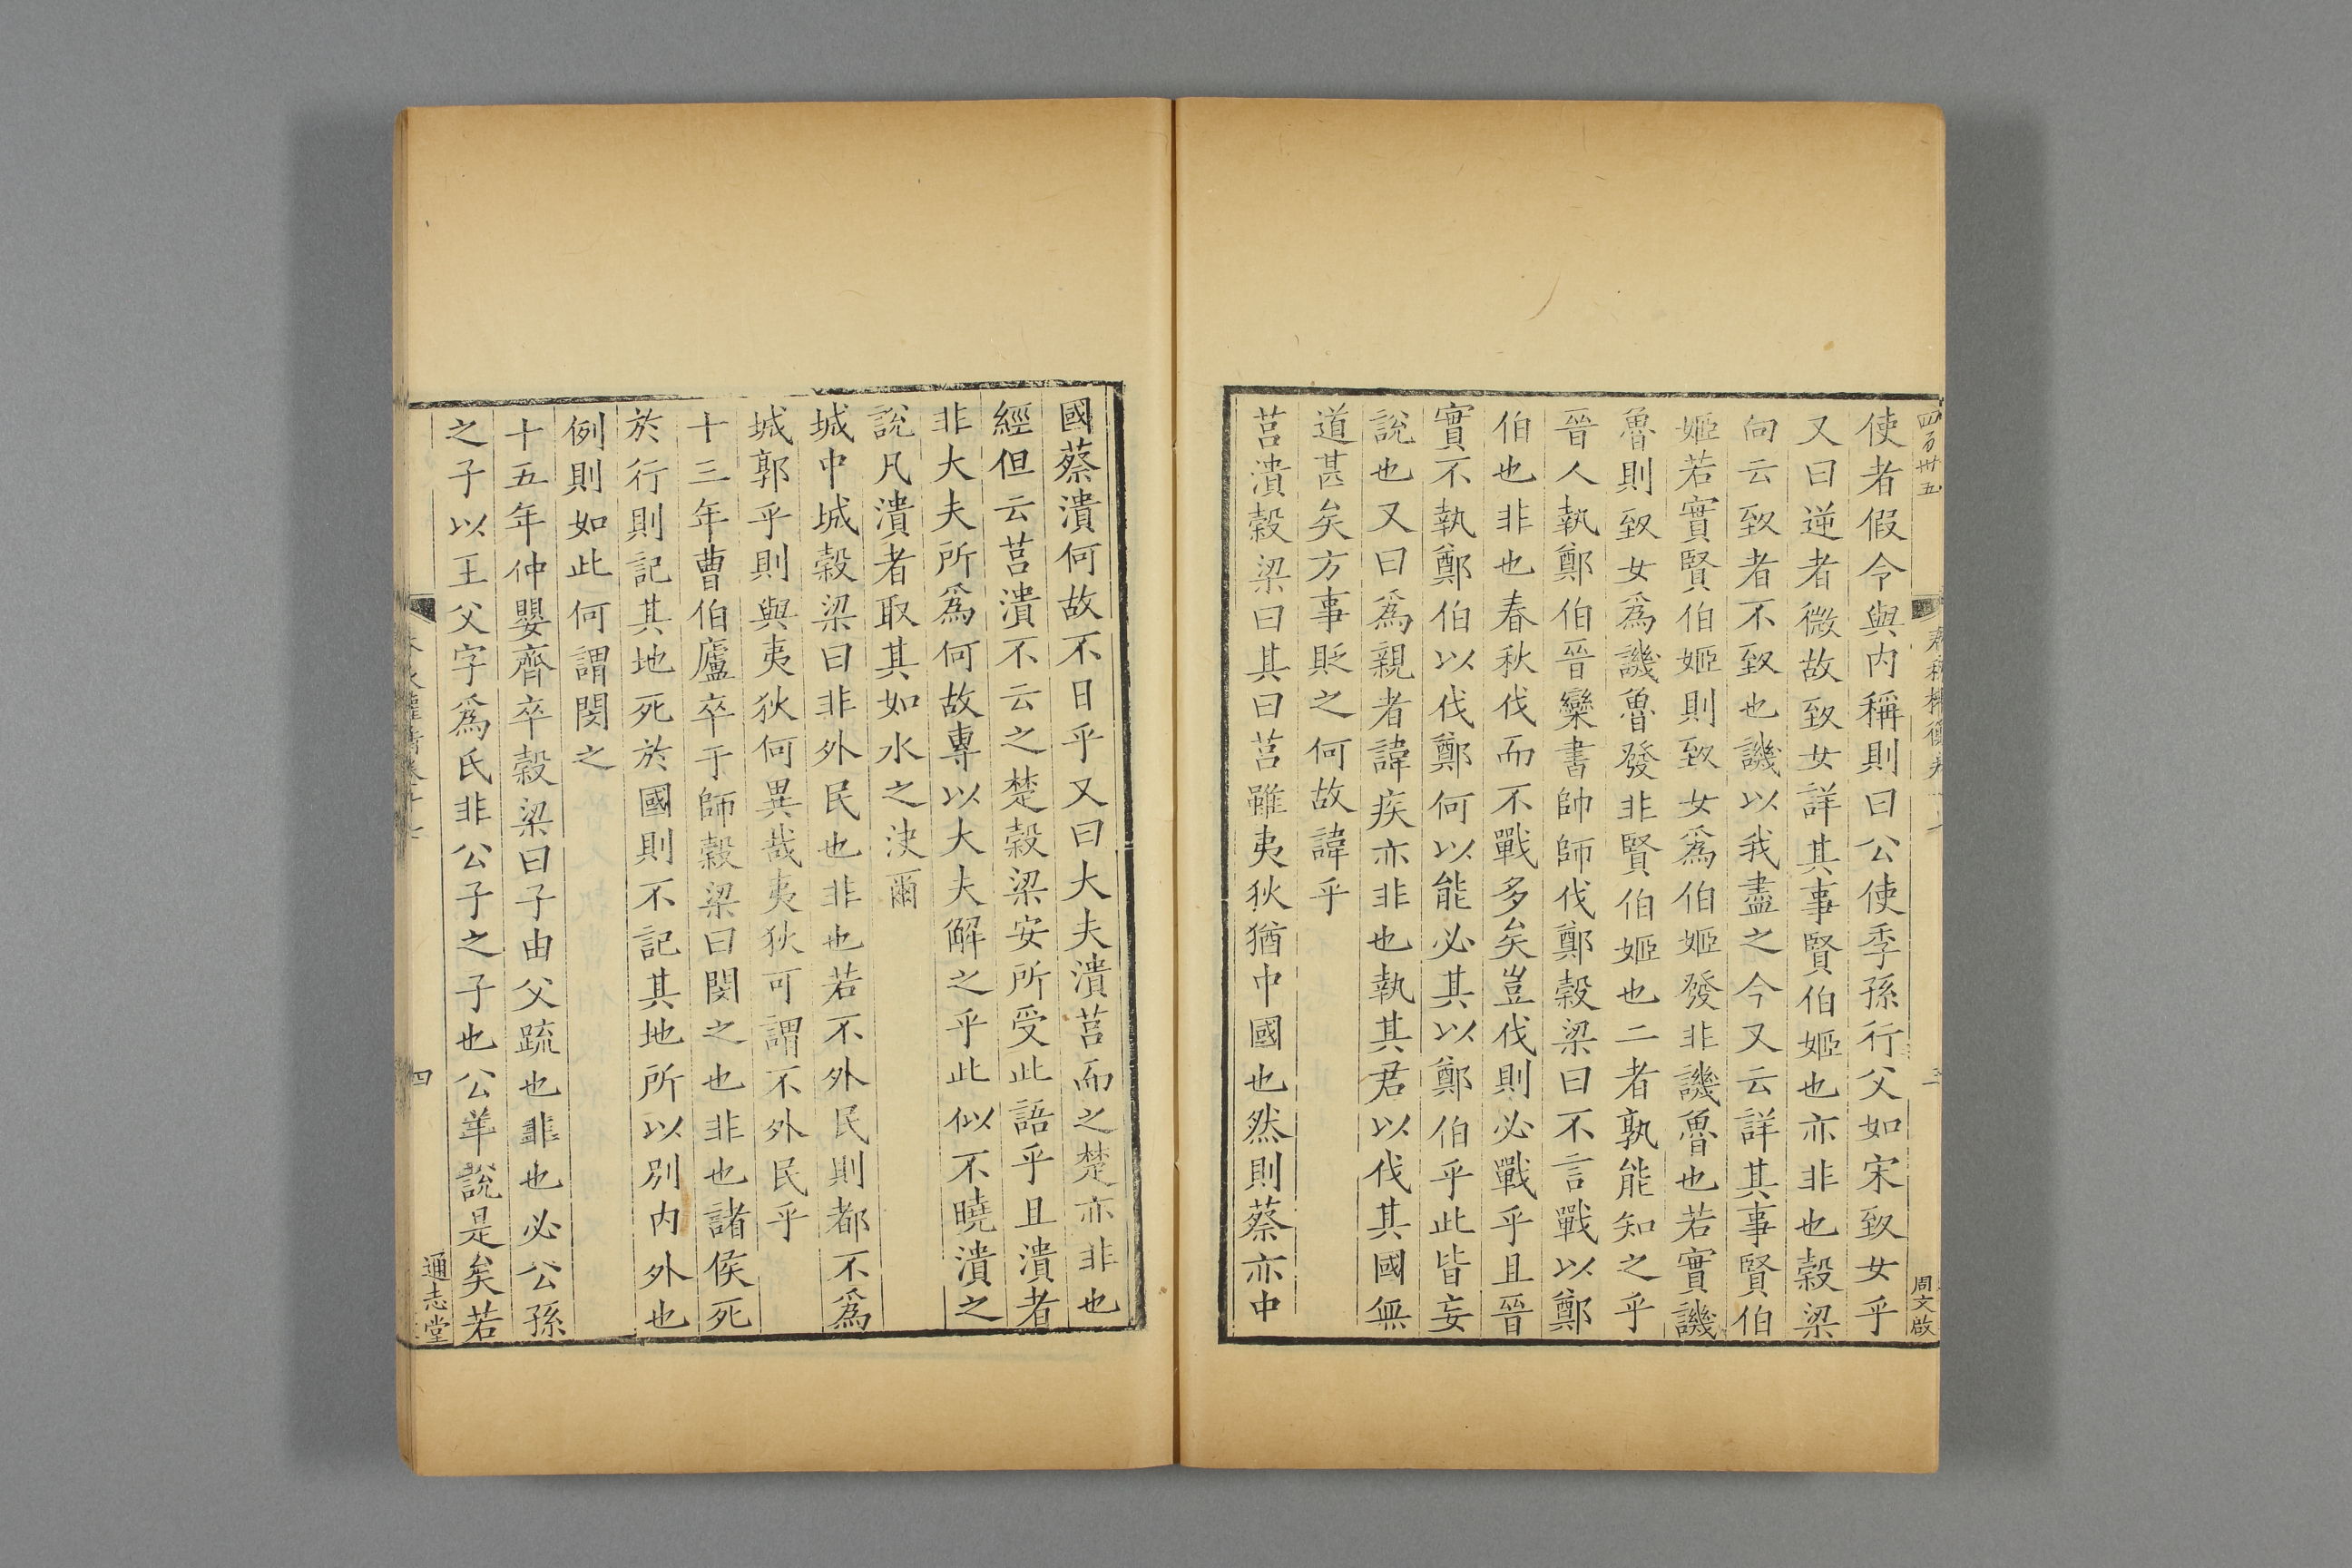 四百卅五
周文啟
使者假令與内稱則曰公使季孫行父如宋致女乎
又曰逆者微故致女詳其事賢伯姬也亦非也穀梁
向云致者不致也譏以我盡之今又云詳其事賢伯
姬若實賢伯姬則致女爲伯姬發非譏魯也若實譏
魯則致女爲譏魯發非賢伯姬也二者孰能知之乎
晉人執鄭伯晉欒書帥師伐鄭穀梁曰不言戰以鄭
伯也非也春秋伐而不戰多矣豈伐則必戰乎且晉
實不執鄭伯以伐鄭何以能必其以鄭伯乎此皆妄
說也又曰爲親者諱疾亦非也執其君以伐其國無
道甚矣方事貶之何故諱乎
莒潰穀梁曰其曰莒雖夷狄猶中國也然則蔡亦中
國蔡潰何故不日乎又曰大夫潰莒而之楚亦非也
經但云莒潰不云之楚穀梁安所受此語乎且潰者
非大夫所爲何故專以大夫解之乎此似不曉潰之
說凡潰者取其如水之決爾
城中城穀梁曰非外民也非也若不外民則都不爲
城郭乎則與夷狄何異哉夷狄可謂不外民乎
十三年曹伯廬卒于師穀梁曰閔之也非也諸侯死
於行則記其地死於國則不記其地所以别内外也
例則如此何謂閔之
十五年仲嬰齊卒穀梁曰子由父疏也非也必公孫
之子以王父字爲氏非公子之子也公羊說是矣若
四
通志堂